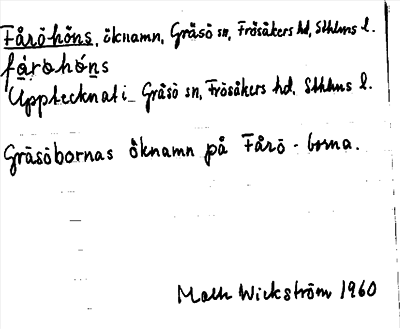 Fåröhöns, öknamn, Gräsö sn, Frösåkers hd, Sthlms l.
fåröhöns
Upptecknat i Gräsö sn, Frösåkers hd. Sthlms l.
Gräsöbornas öknamn på Fårö-borna.
Wickström 1960